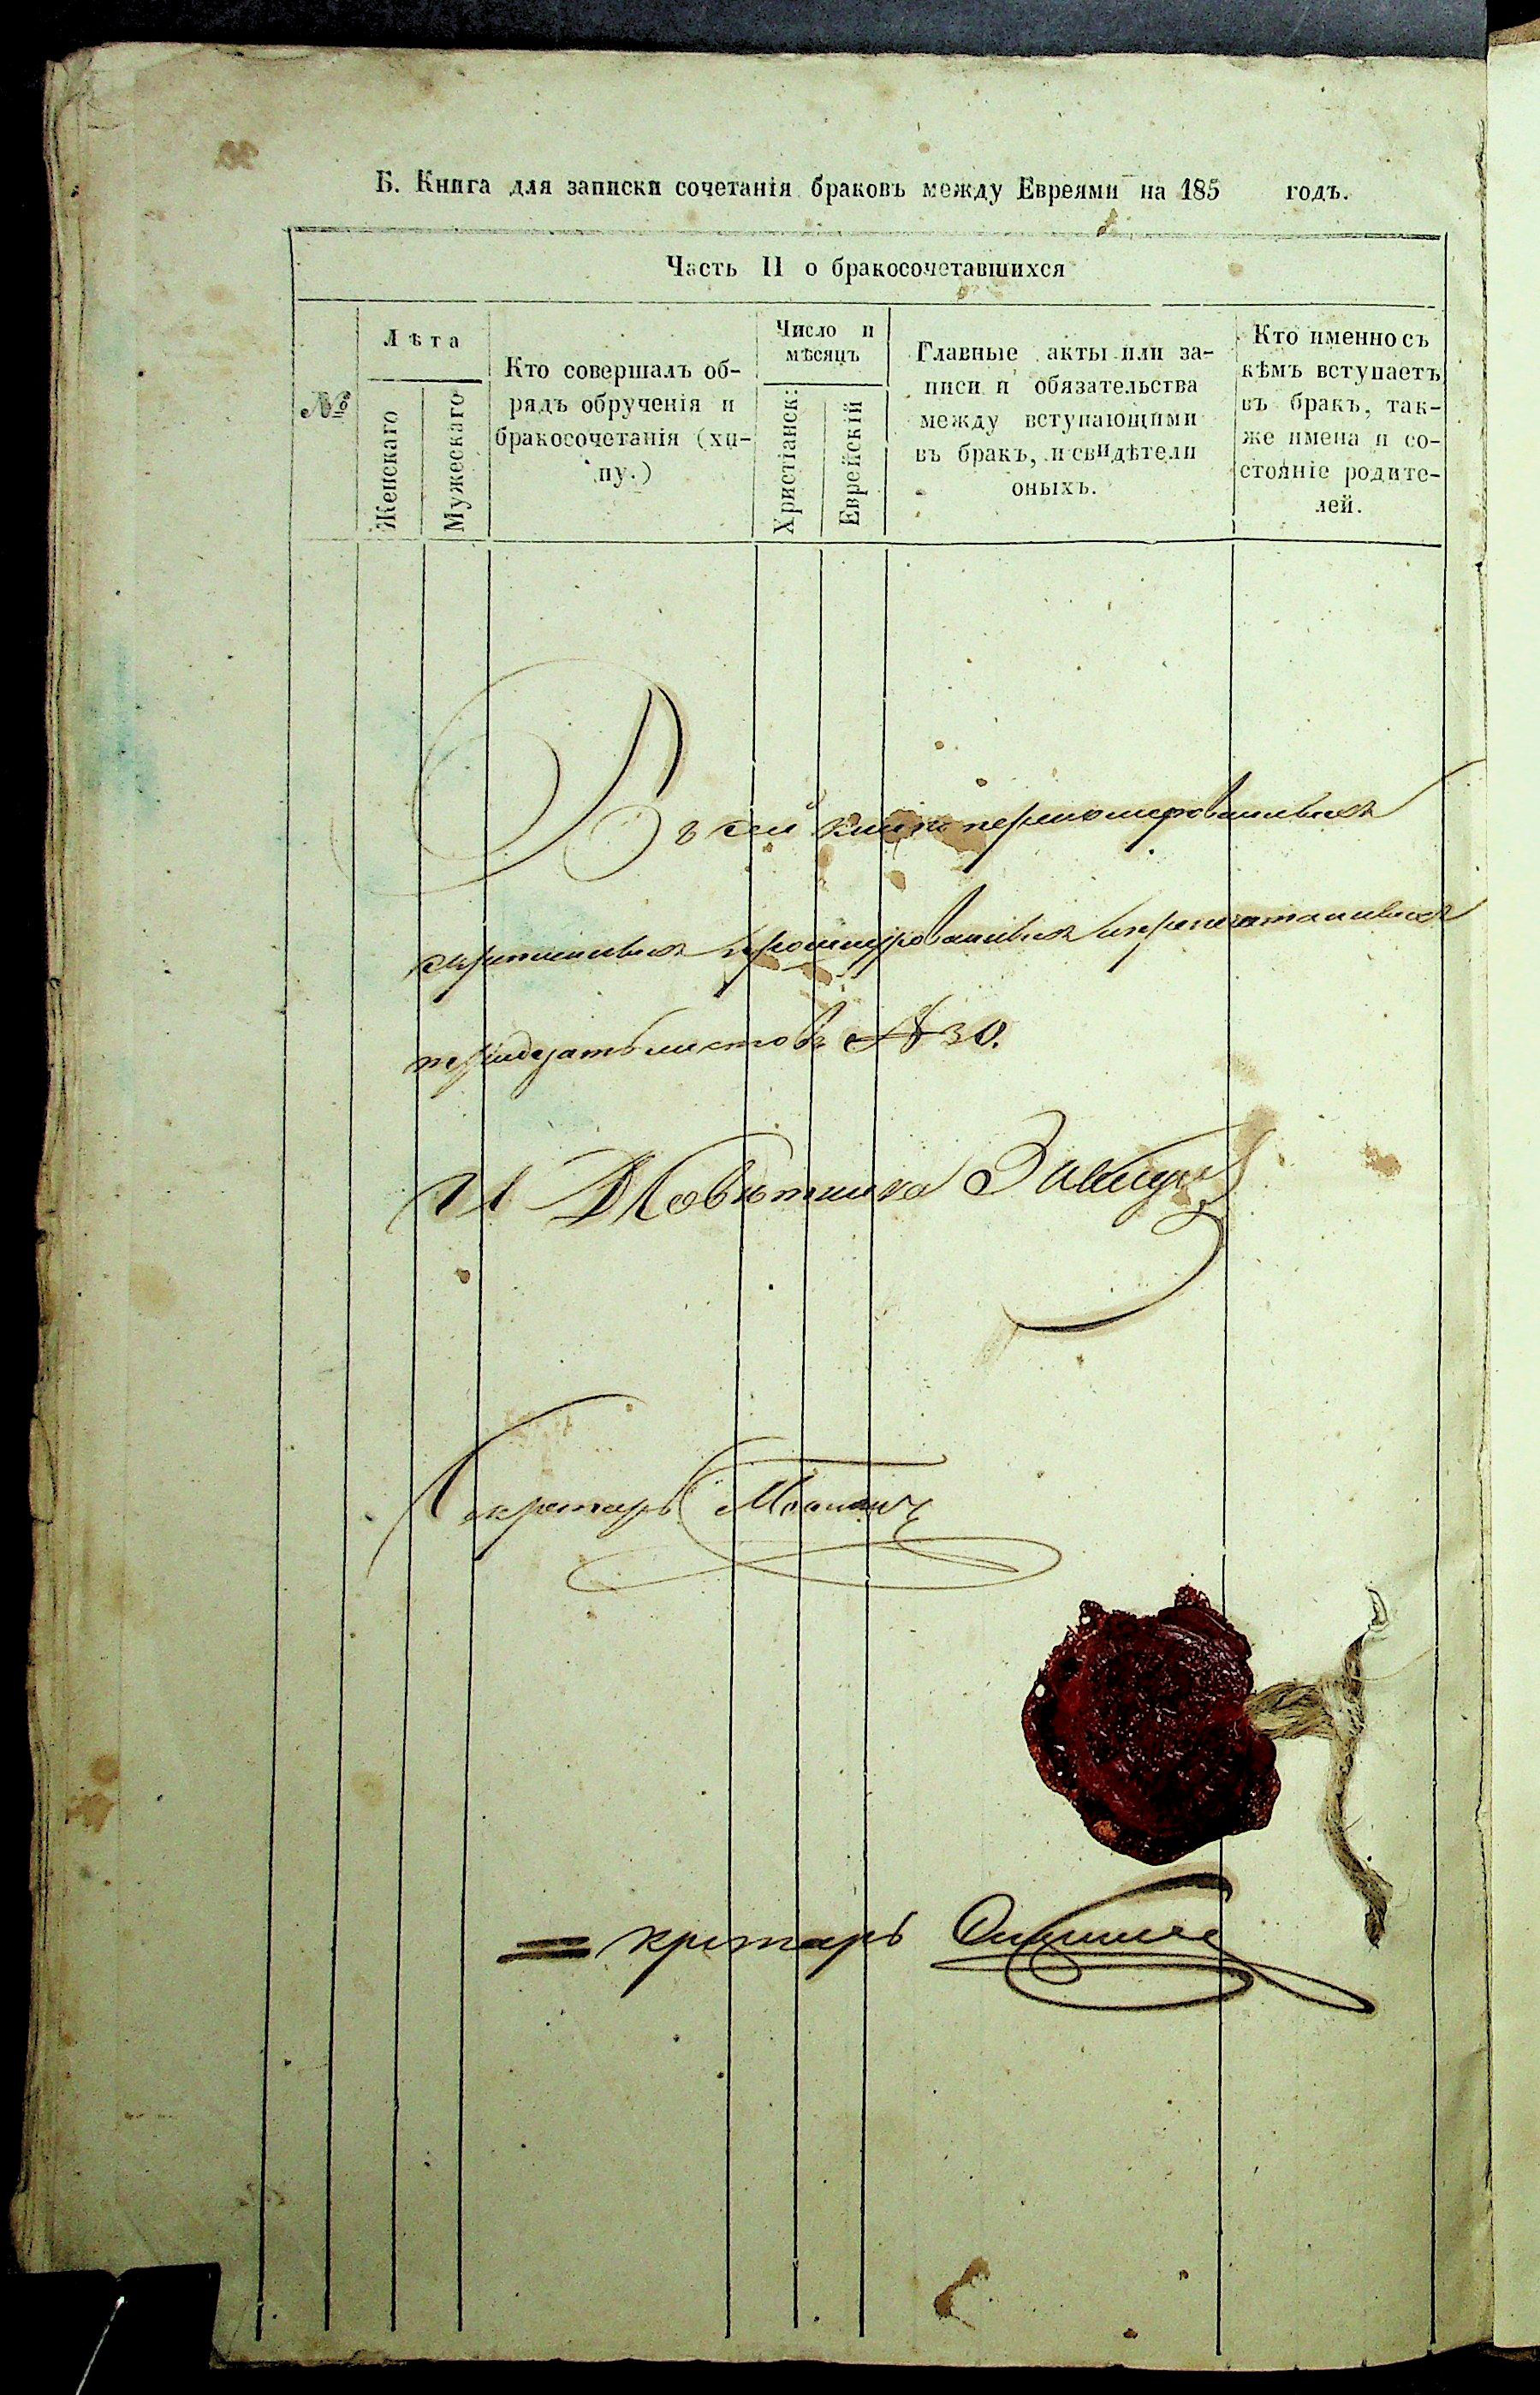 Б. Книга для записки сочетанія браковъ между Евреями на 185 годъ.
Часть II о бракосочетавшихся
№
Лѣта
Женскаго
Мужескаго
Кто совершалъ об-
рядъ обрученія и
бракосочетанія (ху-
пу.)
Число и
мѣсяцъ
Христіанск:
Еврейскій
Главные акты или за-
писи и обязательства
между вступающими
въ бракъ, и свидѣтели
оныхъ.
Кто именно съ
кѣмъ вступаетъ
въ бракъ, так-
же имена и со-
стояніе родите-
лей.
Въ сей книге перенумерованныхъ
скрепленныхъ прошнурованныхъ и припечатанныхъ
тридцать листовъ № 30.
Секретарь
кретарь